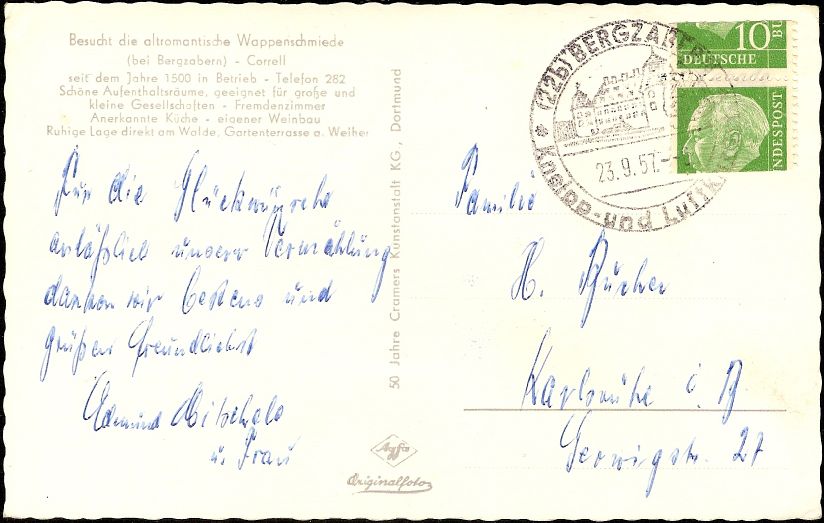 Besucht die altromantische Wappenschmiede
(bei Bergzabern) - Correll
seit dem Jahre 1500 in Betrieb - Telefon 282
Schöne Aufenthaltsräume, geeignet für große und
kleine Gesellschaften - Fremdenzimmer
Anerkannte Küche - eigener Weinbau
Ruhige Lage direkt am Walde, Gartenterrasse a. Weiher
Für die Glückwünsche
anläßlich unserer Vermählung
danken wir bestens und
grüßen freundlichst
Edmund
u. Frau
50 Jahre Cramers Kunstanstalt KG., Dortmund
Agfa
Originalfoto
(22b) BERGZABERN
23.9.57.
Kneipp- und Luftk
10
DEUTSCHE BU
NDESPOST
Familie
H.
Karlsruhe i. B
Gerwigstr. 27